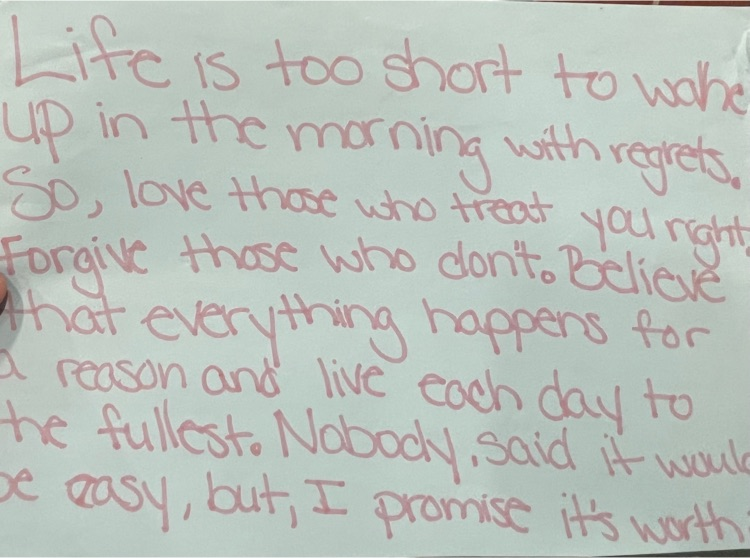 Life is too short to wake
up in the morning with regrets.
So, love those who treat you right.
Forgive those who don't. Believe
that everything happens for
a reason and live each day to
the fullest. Nobody, said it would
be easy, but, I promise it's worth